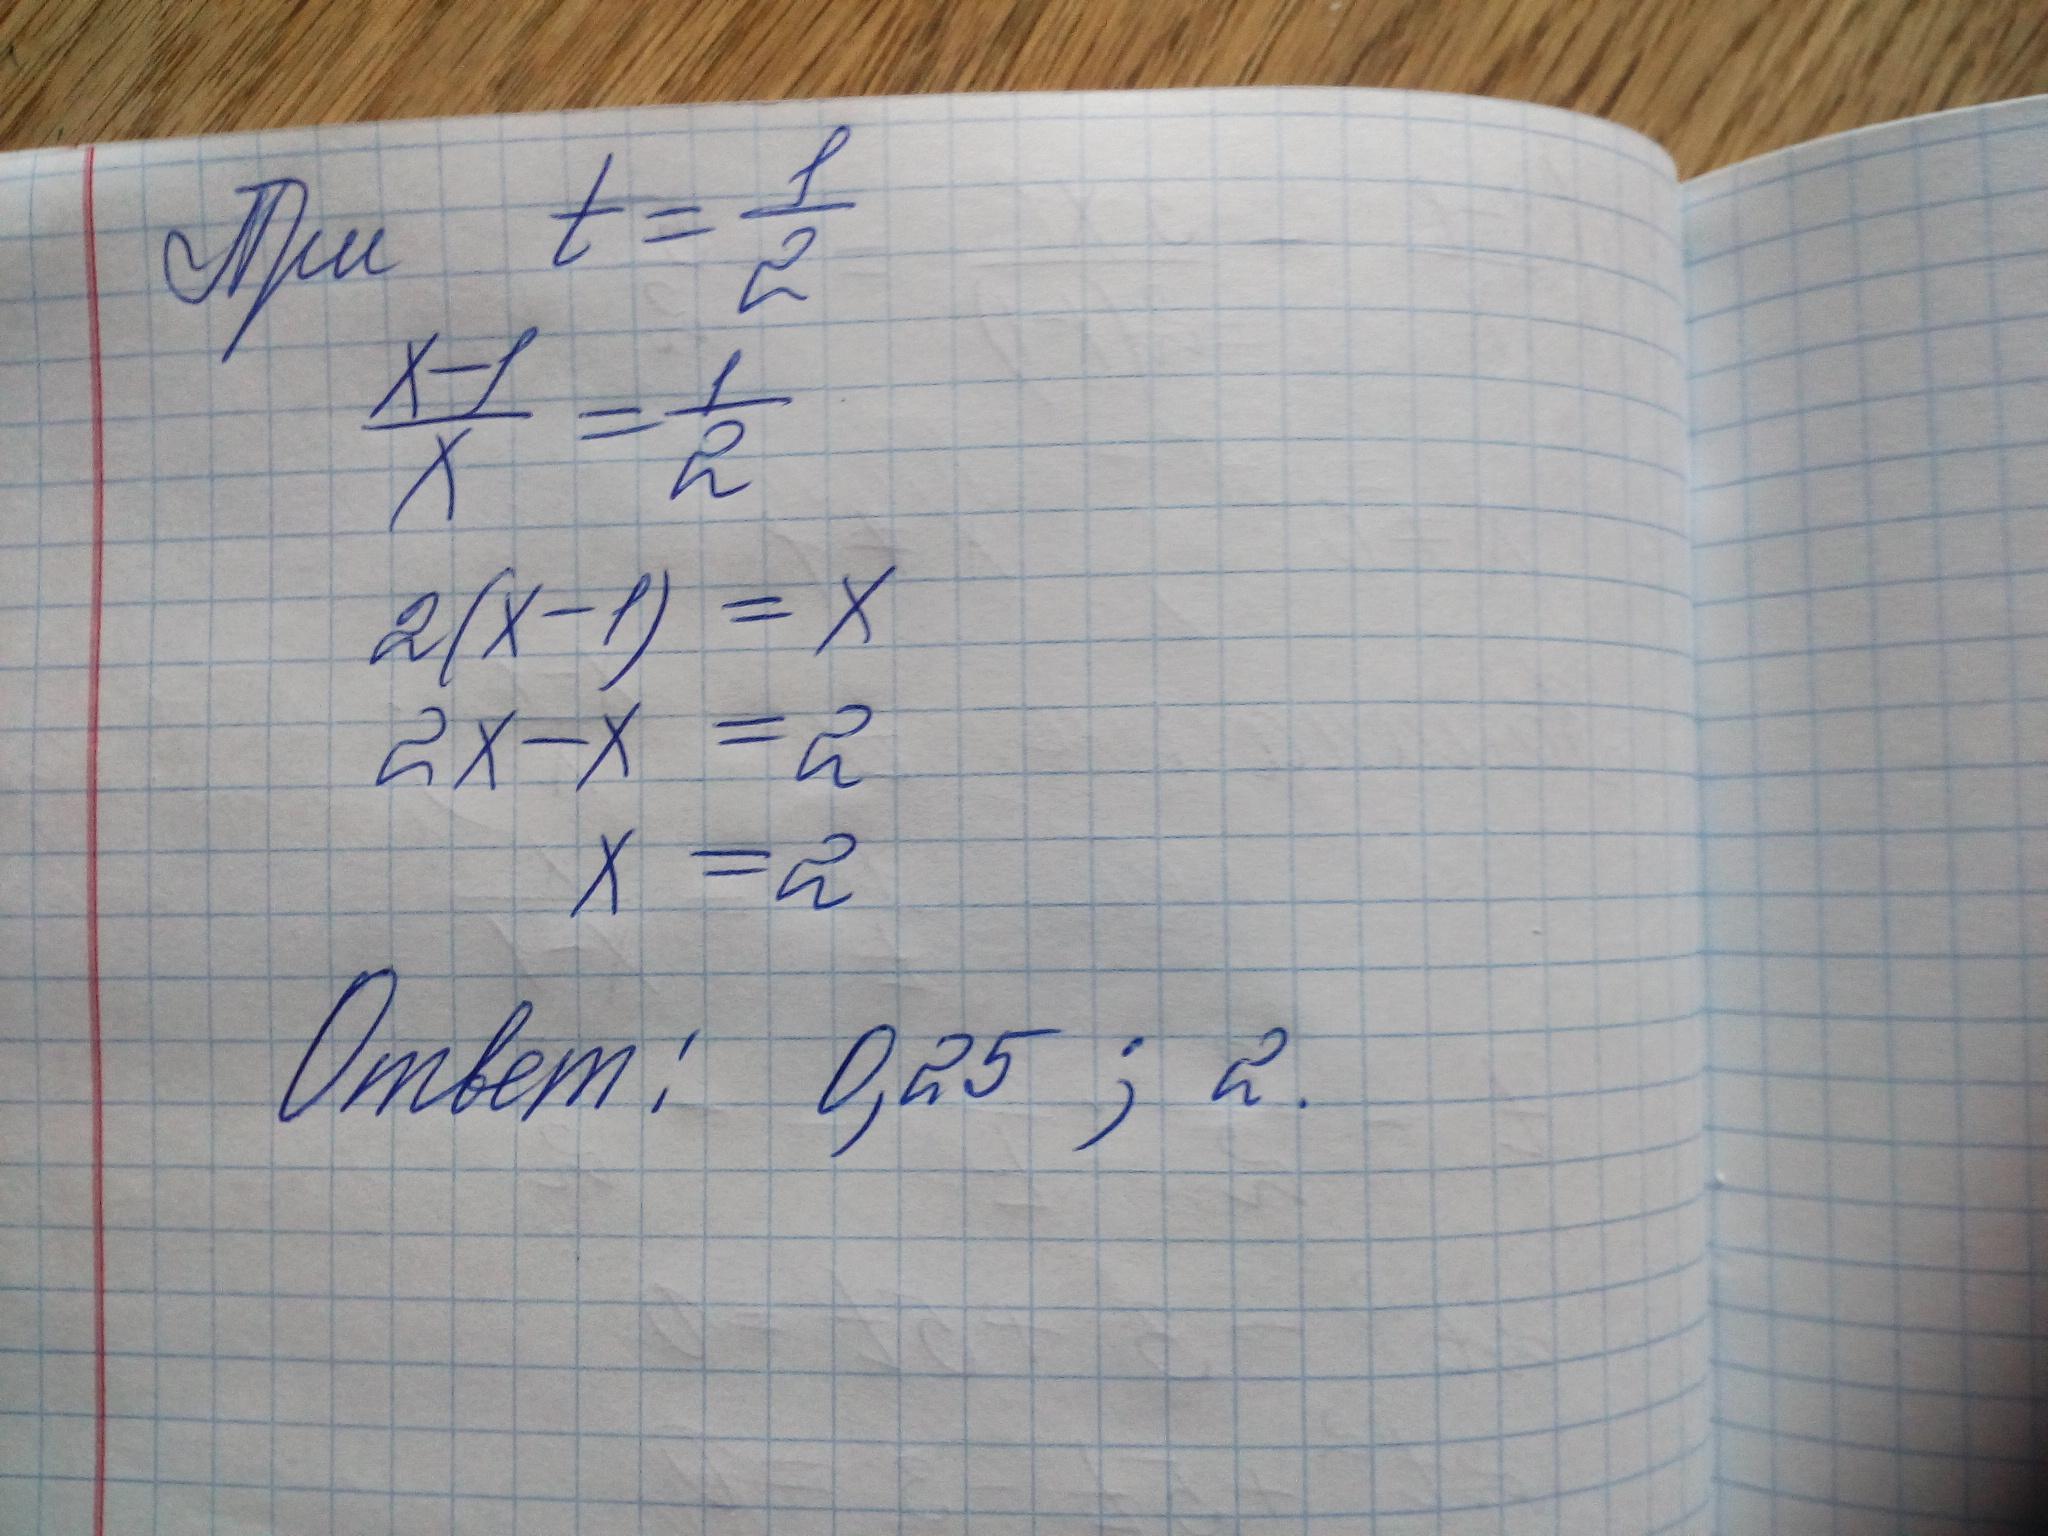 При t = 1/2
x-1/x = 1/2
2(x-1) = x
2x-x = 2
x = 2
Ответ: 0,25 ; 2.